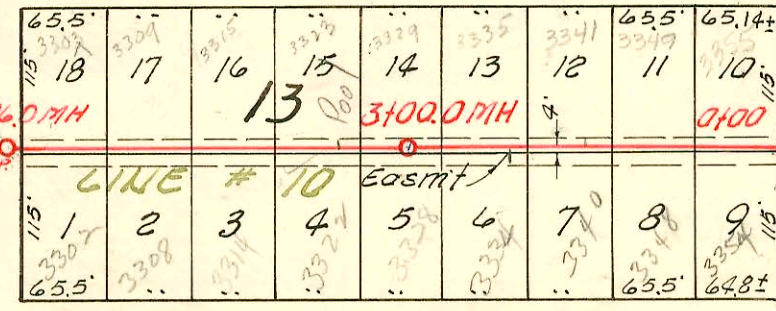 65.5' 65.5' 65.14±
3303 3309 3315 3323 3329 3335 3341 3349 3355
115' 18 17 16 15 14 13 12 11 10 115'
13 Pool
6.0 MH 3+00.0 MH 4' 0+00
LINE # 10 Easmt
115' 1 2 3 4 5 6 7 8 9 115'
3302 3308 3314 3322 3328 3334 3340 3348 3354
65.5' 65.5' 64.8±